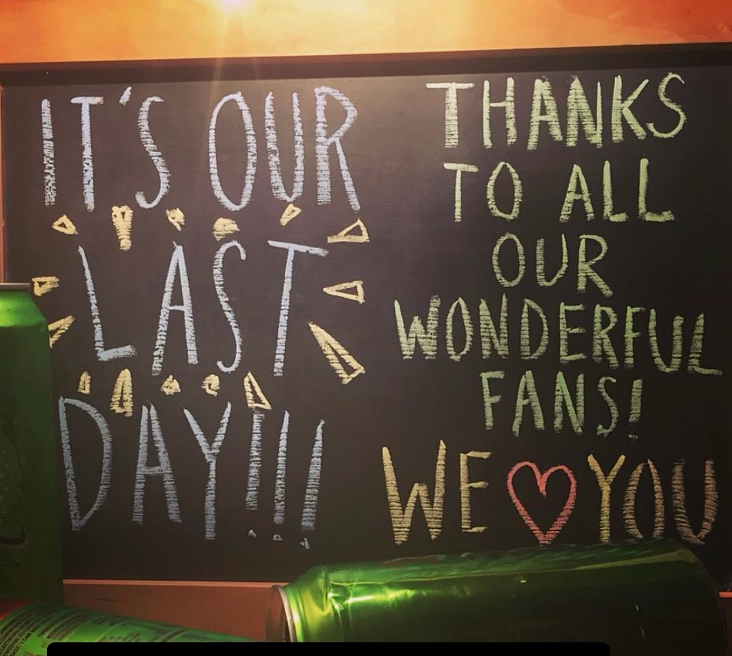 IT'S OUR
LAST
DAY!!!
THANKS
TO ALL
OUR
WONDERFUL
FANS!
WE ♡ YOU